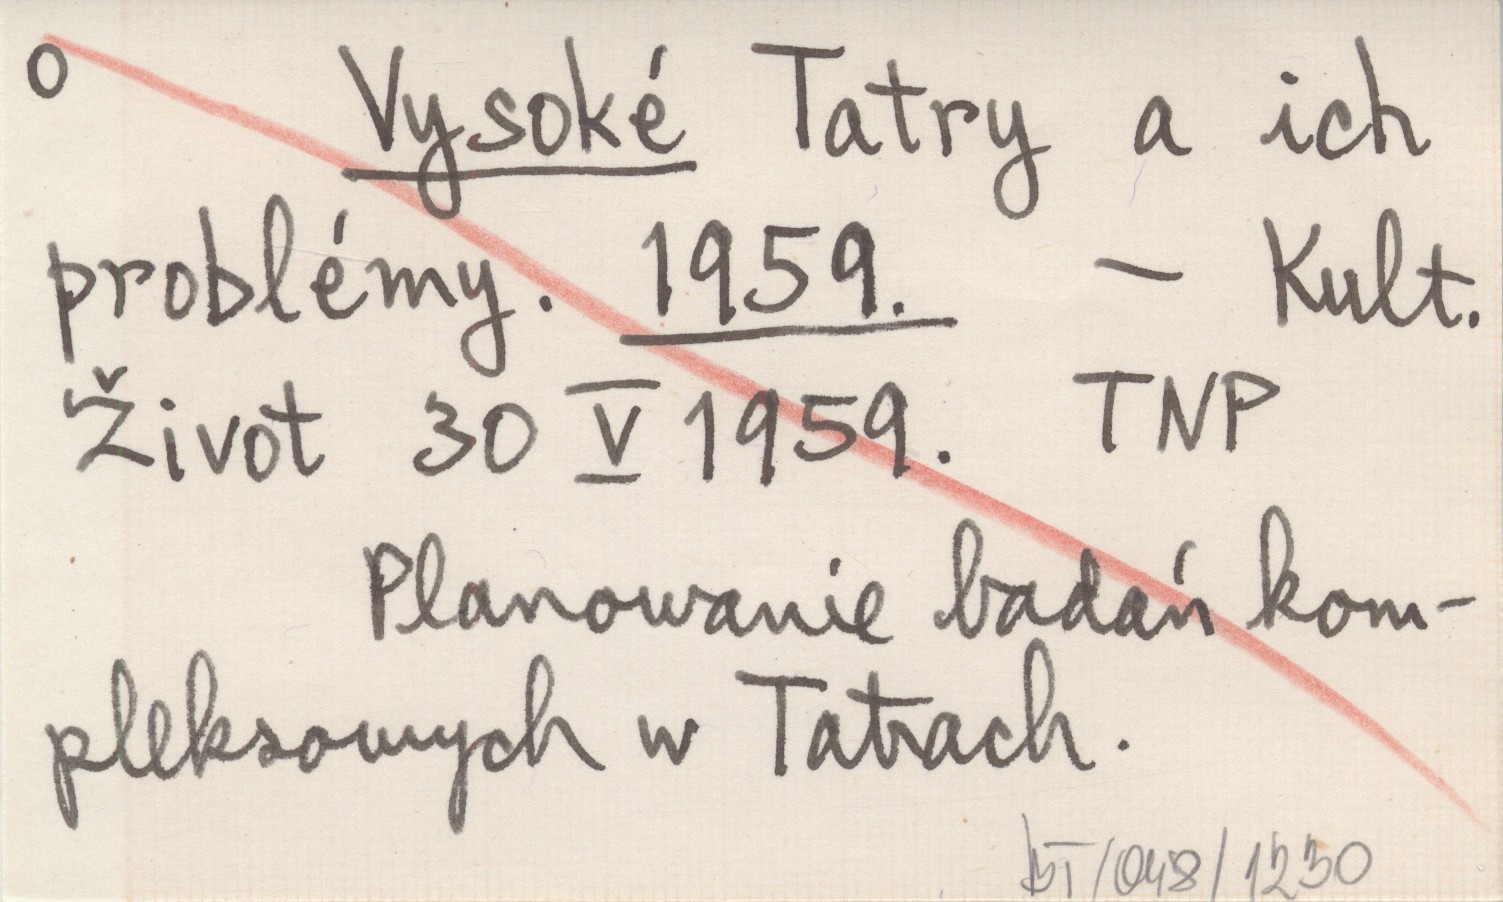 o Vysoké Tatry a ich
problémy. 1959. – Kult.
Život 30 V 1959. TNP
Planowanie badań kom-
pleksowych w Tatrach.
/048/1230